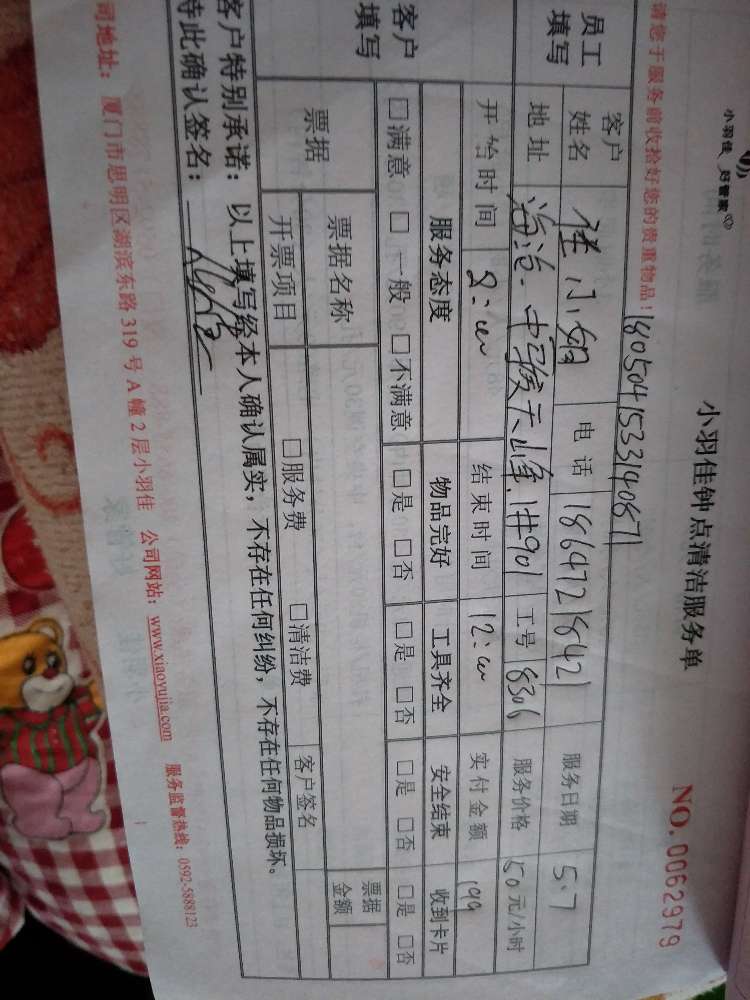 小羽佳 好管家
小羽佳钟点清洁服务单
请您于服务前收拾好您的贵重物品！
NO.0062979
1805041533140871
员工填写
客户姓名 小姐 电话 18647218421 服务日期 5.7
地址 海沧.中骏天峰.1#901 工号 8306 服务价格 50元/小时
客户填写
开始时间 8:00 结束时间 12:00 实付金额 199
服务态度 物品完好 工具齐全 安全结束 收到卡片
□满意 □一般 □不满意 □是 □否 □是 □否 □是 □否 □是 □否
票据 票据名称 票据金额
开票项目 □服务费 □清洁费 客户签名
客户特别承诺：以上填写经本人确认属实，不存在任何纠纷，不存在任何物品损坏。
特此确认签名：
司地址：厦门市思明区湖滨东路319号A幢2层小羽佳 公司网站：www.xiaoyujia.com 服务监督热线：0592-5888123